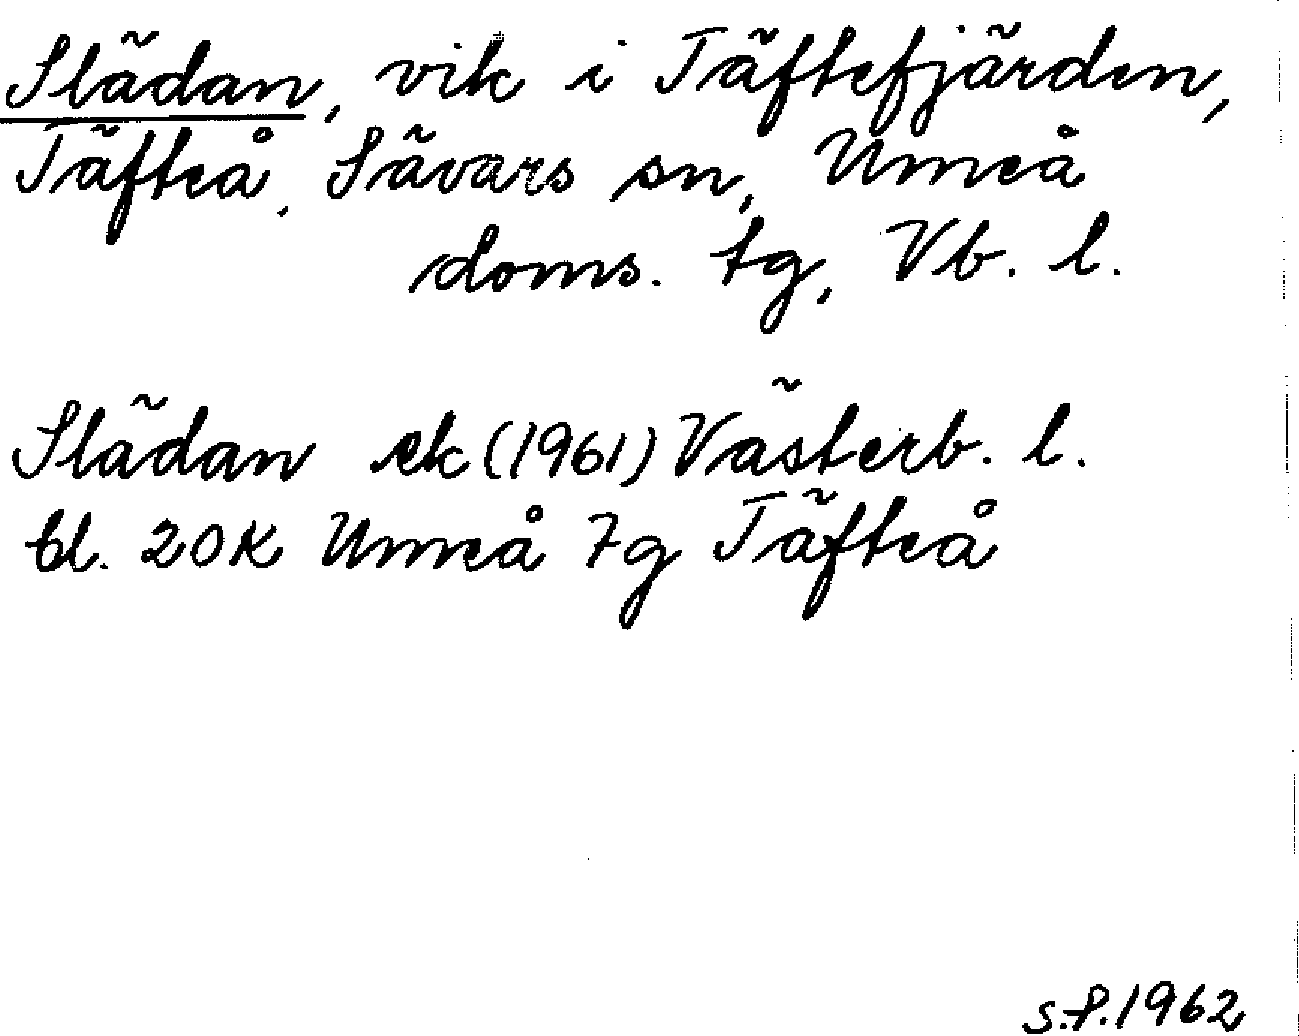 Slädan, vik i Täftefjärden,
Täfteå, Sävars sn, Umeå
doms. tg, Vb. l.
Slädan ek (1961) Västerb. l.
bl. 20K Umeå 7g Täfteå
S.P. 1962